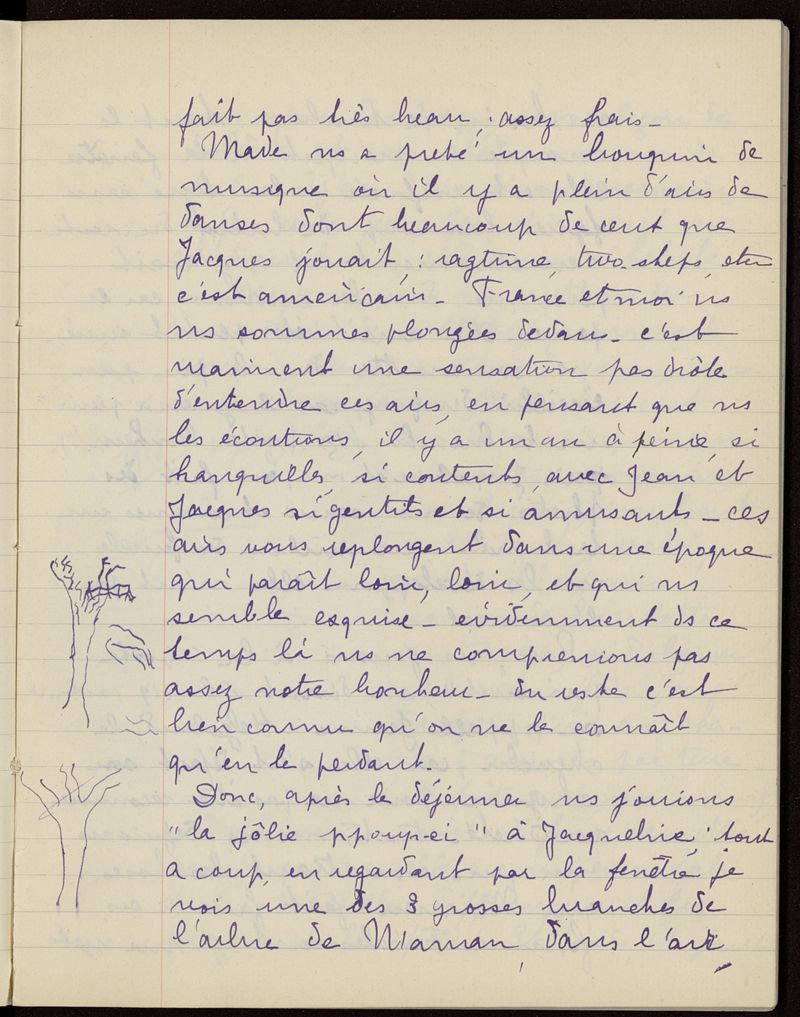 fait pas très beau, assez frais -
Made ns a prêté un bouquin de
musique où il y a plein d'airs de
danses dont beaucoup de ceux que
Jacques jouait, : ragtime, two-steps, etc
c'est américain - France et moi ns
ns sommes plongées dedans - c'est
vraiment une sensation pas drôle
d'entendre ces airs, en pensant que ns
les écoutions, il y a un an à peine, si
tranquilles, si contents, avec Jean et
Jacques si gentils et si amusants - ces
airs vous replongent dans une époque
qui paraît loin, loin, et qui ns
semble exquise - évidemment ds ce
temps là ns ne comprenions pas
assez notre bonheur - du reste c'est
bien connu qu'on ne le connaît
qu'en le perdant.
Donc, après le déjeuner ns jouions
"la jôlie ppoup-ei" à Jacqueline, tout
a coup, en regardant par la fenêtre je
vois une des 3 grosses branches de
l'arbre de Maman, dans l'air